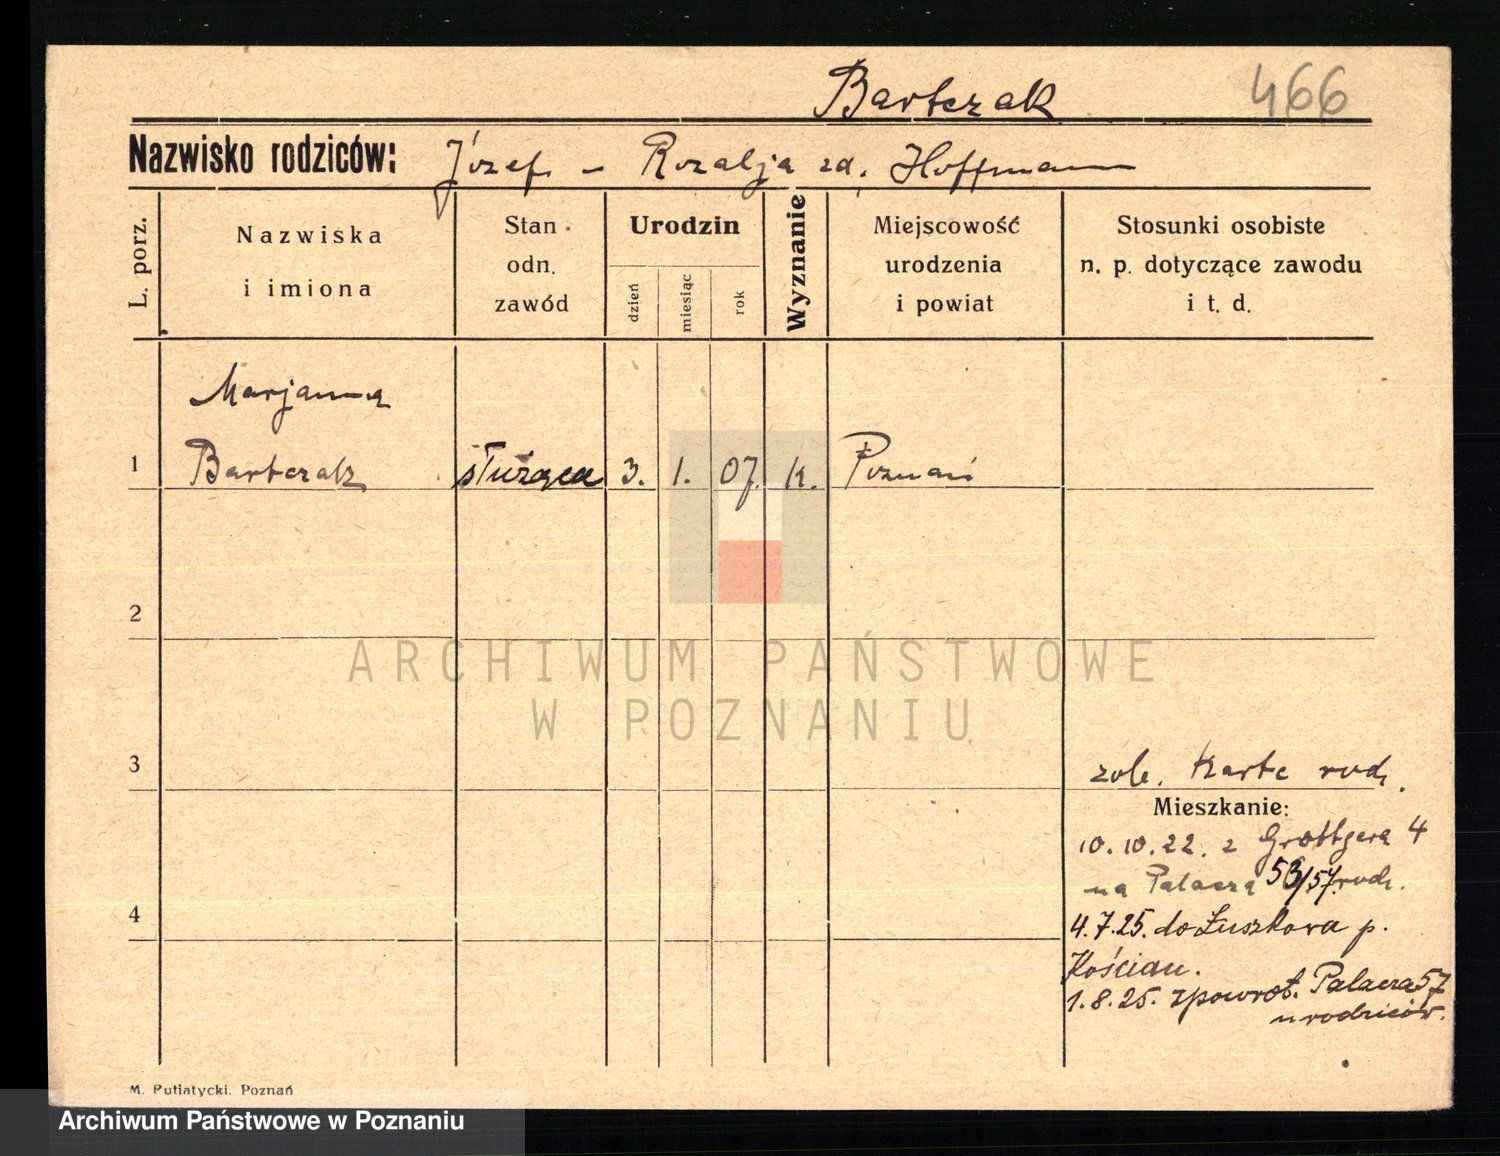 Bartczak 466
Nazwisko rodziców: Józef - Rozalja zd. Hoffmann
L. porz.
Nazwiska
i imiona
Stan
odn.
zawód
Urodzin
dzień
miesiąc
rok
Wyznanie
Miejscowość
urodzenia
i powiat
Stosunki osobiste
n. p. dotyczące zawodu
i t. d.
Marjanna
1 Bartczak służąca 3. 1. 07. k. Poznań
2
ARCHIWUM PAŃSTWOWE
W POZNANIU
3 zob. Kartę rod.
Mieszkanie:
10.10.22. z Grottgera 4
na Palacza 53/57 rodz.
4
4.7.25. do Łuszkowa p.
Kościan.
1.8.25. zpowrot. Palacza 57
u rodziców.
M. Putiatycki. Poznań
Archiwum Państwowe w Poznaniu